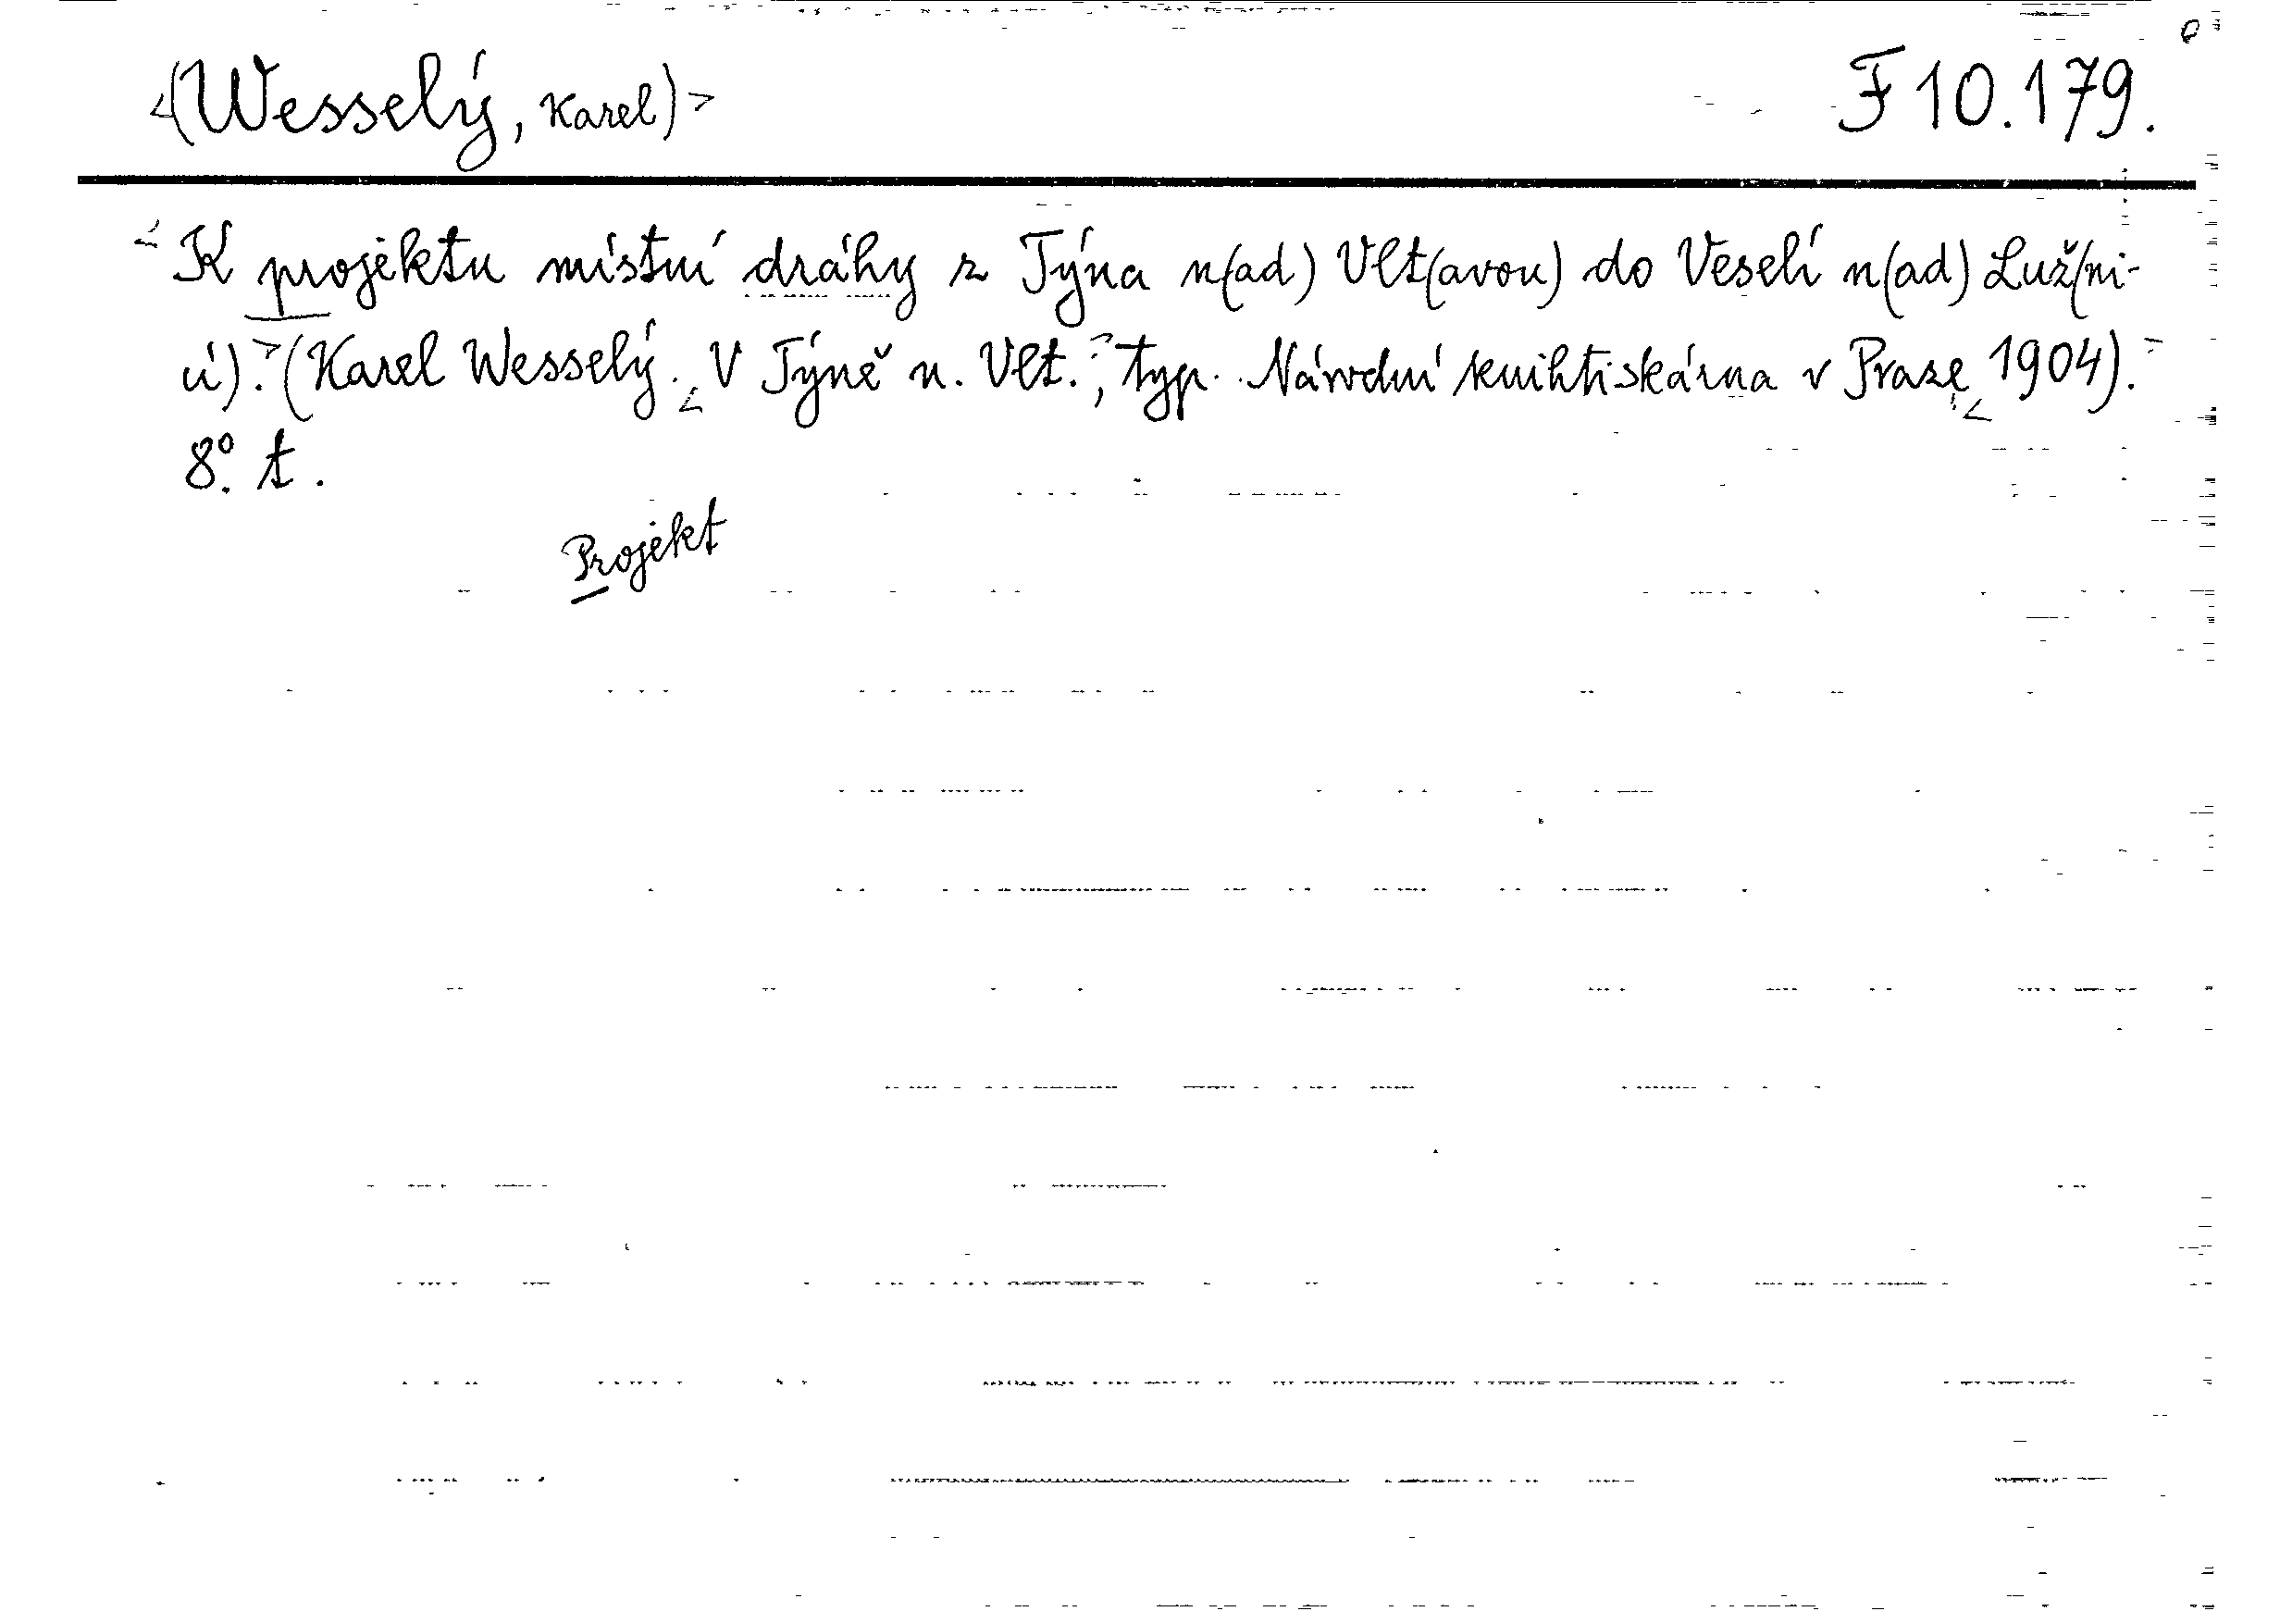 <(Wesselý, Karel)> F 10.179.
<K projektu místní dráhy z Týna n(ad) Vlt(avou) do Veselí n(ad) Luž(ni-
cí).>(Karel Wesselý.<V Týně n. Vlt.>, typ. Národní knihtiskárna v Praze,<1904).>
8°. t.
Projekt